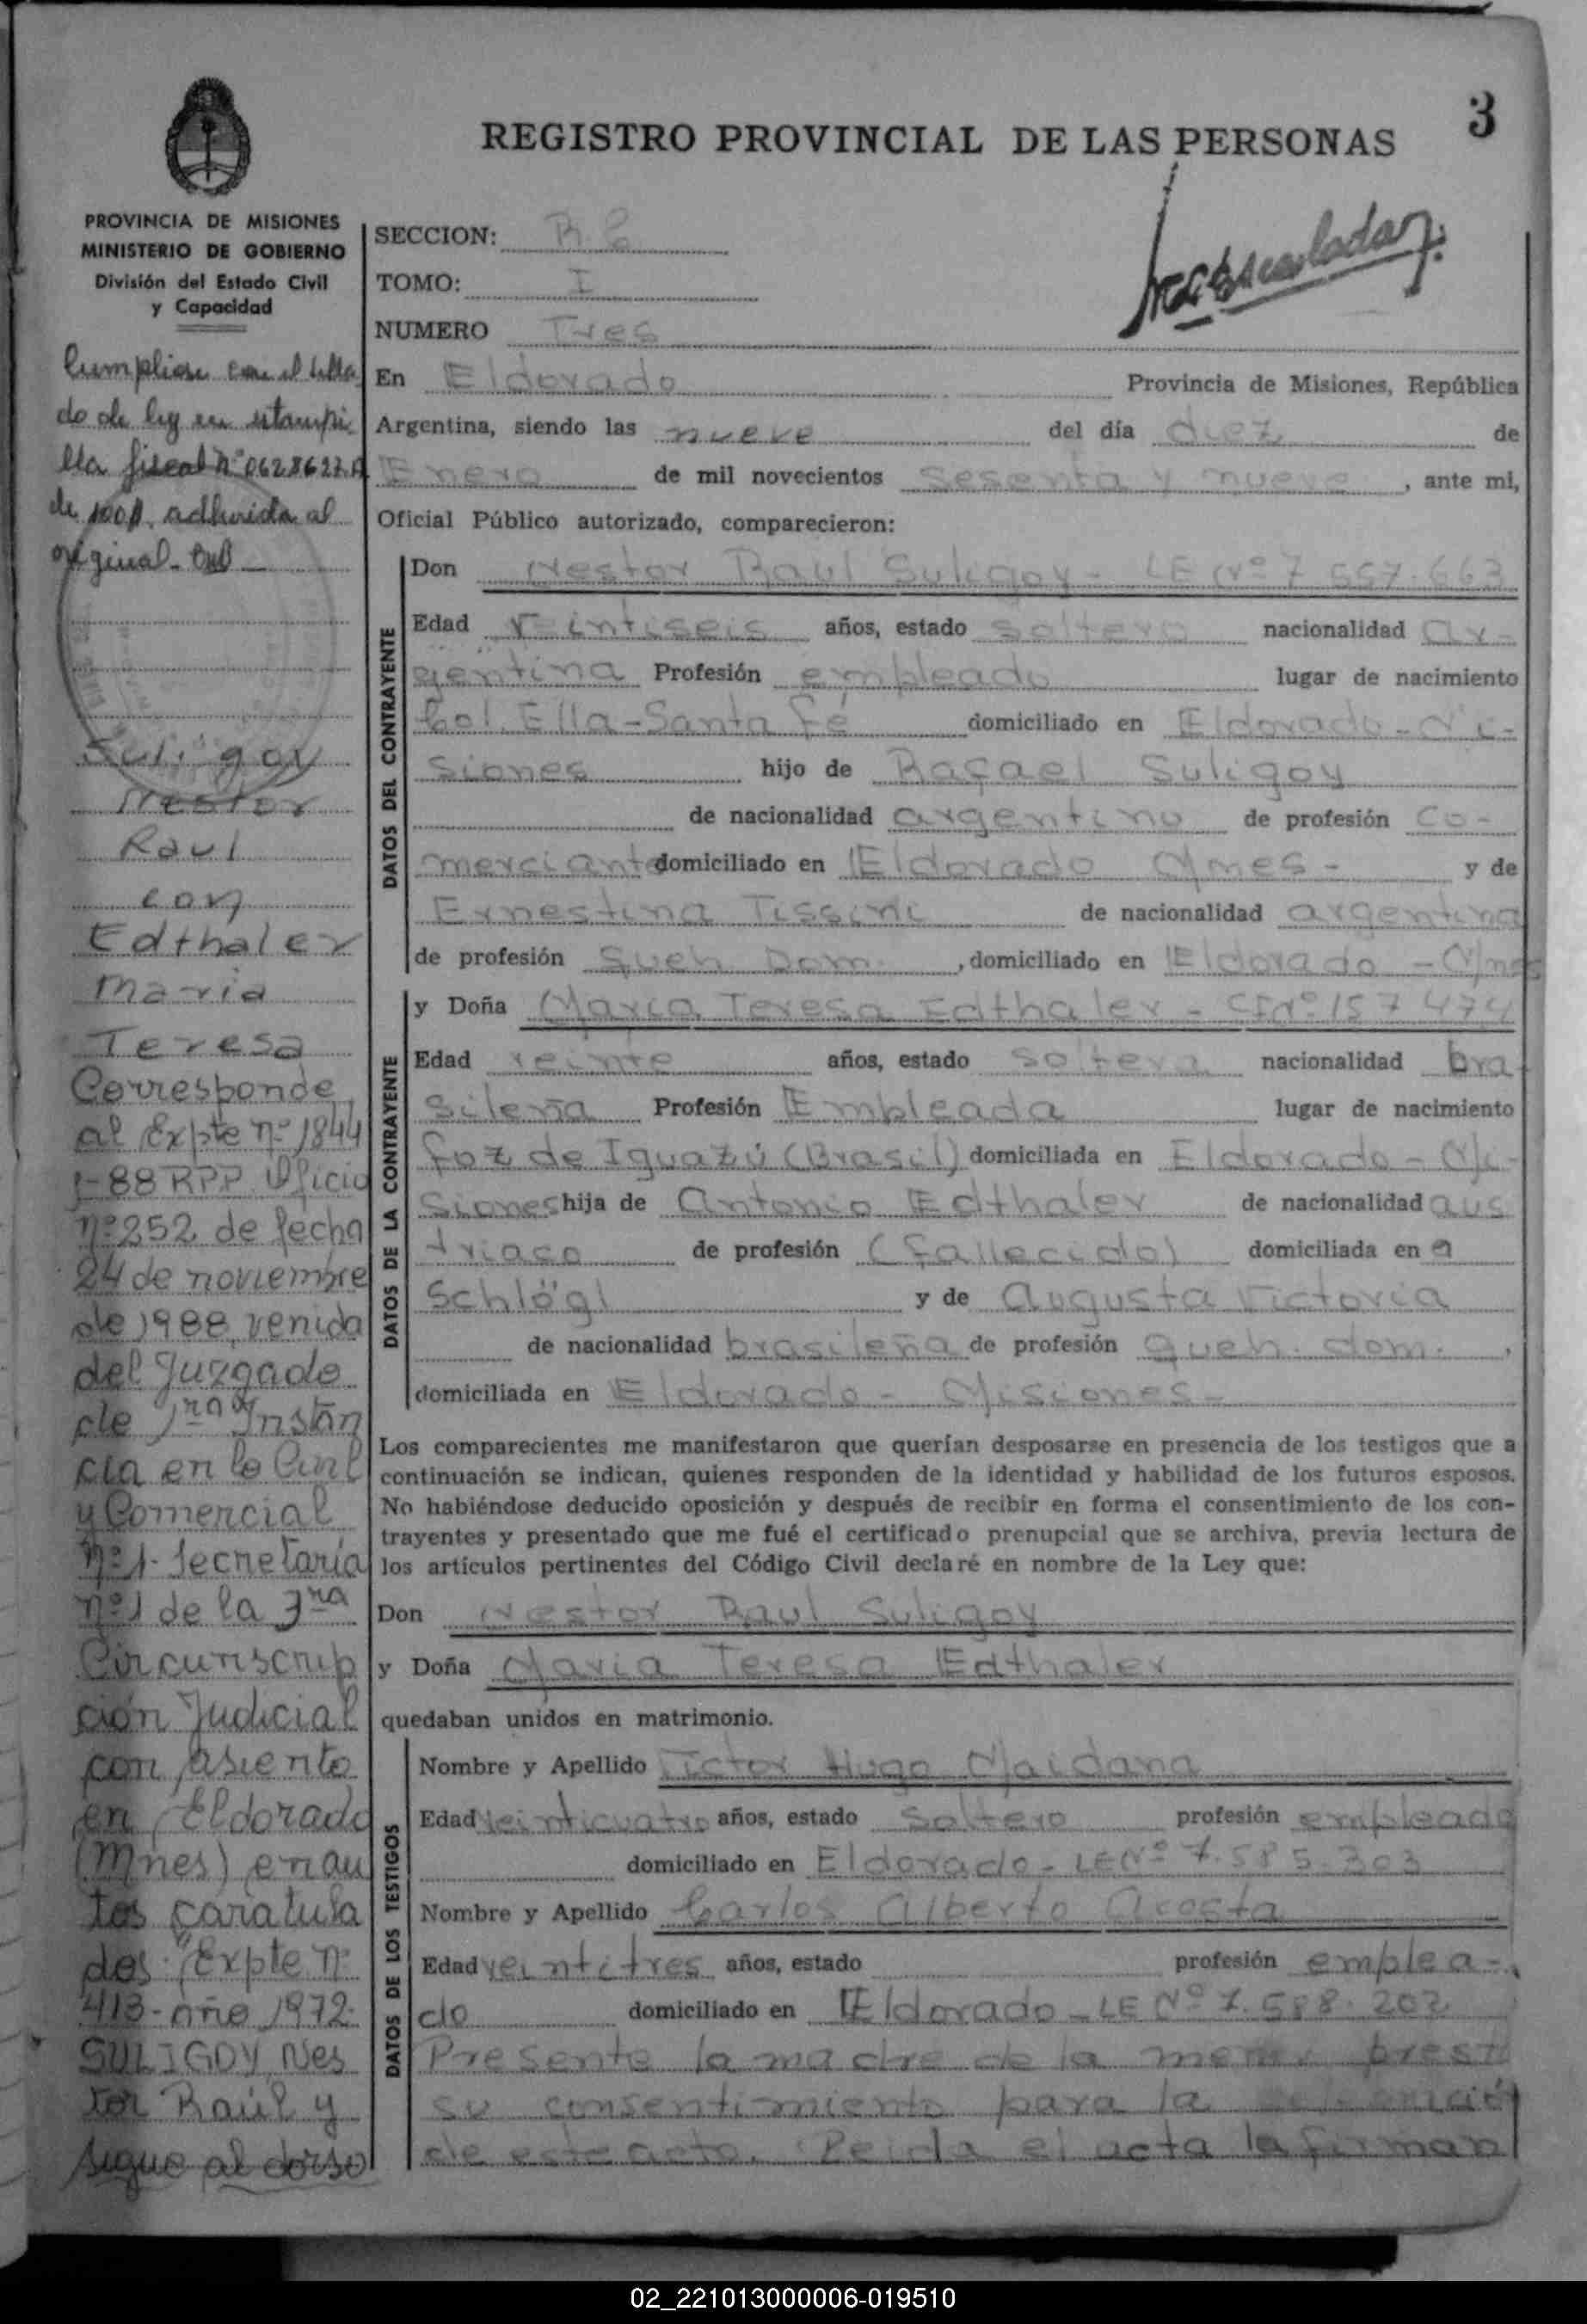 3
REGISTRO PROVINCIAL DE LAS PERSONAS
PROVINCIA DE MISIONES
MINISTERIO DE GOBIERNO
División del Estado Civil
y Capacidad
Cumpliose con el sella
do de ley en estampi
lla fiscal Nº 0628627 A
de 100 $ adherida al
original
Suligoy
Nestor
Raul
con
Edthaler
Maria
Teresa
Corresponde
al Expte nº 1844
1-88 RPP Oficio
nº 252 de fecha
24 de noviembre
de 1988, venida
del Juzgado
de 1ra Instan
cia en lo Civil
y Comercial
nº 1. Secretaría
nº 1 de la 3ra
Circunscrip
ción Judicial
con asiento
en Eldorado
(Mnes) en au
tos caratula
dos "Expte nº
413-año 1972-
SULIGOY, Nes
tor Raúl y
sigue al dorso
SECCION: R.C
TOMO: I
NUMERO Tres
En Eldorado Provincia de Misiones, República
Argentina, siendo las nueve del día diez de
Enero de mil novecientos sesenta y nueve, ante mi,
Oficial Público autorizado, comparecieron:
DATOS DEL CONTRAYENTE
Don Nestor Raul Suligoy - LE Nº 7 557.663
Edad Veintiseis años, estado soltero nacionalidad ar-
gentina Profesión empleado lugar de nacimiento
Col. Ella-Santa Fé domiciliado en Eldorado - Mi-
siones hijo de Rafael Suligoy
de nacionalidad argentino de profesión co-
merciante domiciliado en Eldorado Mnes - y de
Ernestina Tissini de nacionalidad argentina
de profesión Queh Dom. , domiciliado en Eldorado - Mnes
DATOS DE LA CONTRAYENTE
y Doña Maria Teresa Edthaler - CI Nº 157 474
Edad veinte años, estado soltera nacionalidad bra
sileña Profesión Empleada lugar de nacimiento
Foz de Iguazú (Brasil) domiciliada en Eldorado - Mi-
siones hija de Antonio Edthaler de nacionalidad aus
triaco de profesión (fallecido) domiciliada en
Schlögl y de Augusta Victoria
de nacionalidad brasileña de profesión queh. dom. ,
domiciliada en Eldorado - Misiones -
Los comparecientes me manifestaron que querían desposarse en presencia de los testigos que a
continuación se indican, quienes responden de la identidad y habilidad de los futuros esposos.
No habiéndose deducido oposición y después de recibir en forma el consentimiento de los con-
trayentes y presentado que me fué el certificado prenupcial que se archiva, previa lectura de
los artículos pertinentes del Código Civil declaré en nombre de la Ley que:
Don Nestor Raul Suligoy
y Doña Maria Teresa Edthaler
quedaban unidos en matrimonio.
DATOS DE LOS TESTIGOS
Nombre y Apellido Victor Hugo Maidana
Edad veinticuatro años, estado soltero profesión empleado
domiciliado en Eldorado - LE Nº 7.585.303
Nombre y Apellido Carlos Alberto Acosta
Edad veintitres años, estado profesión emplea-
do domiciliado en Eldorado - LE Nº 7.588.202
Presente la madre de la menor prest
su consentimiento para la
de este acto. Leida el acta la firman
02_221013000006-019510